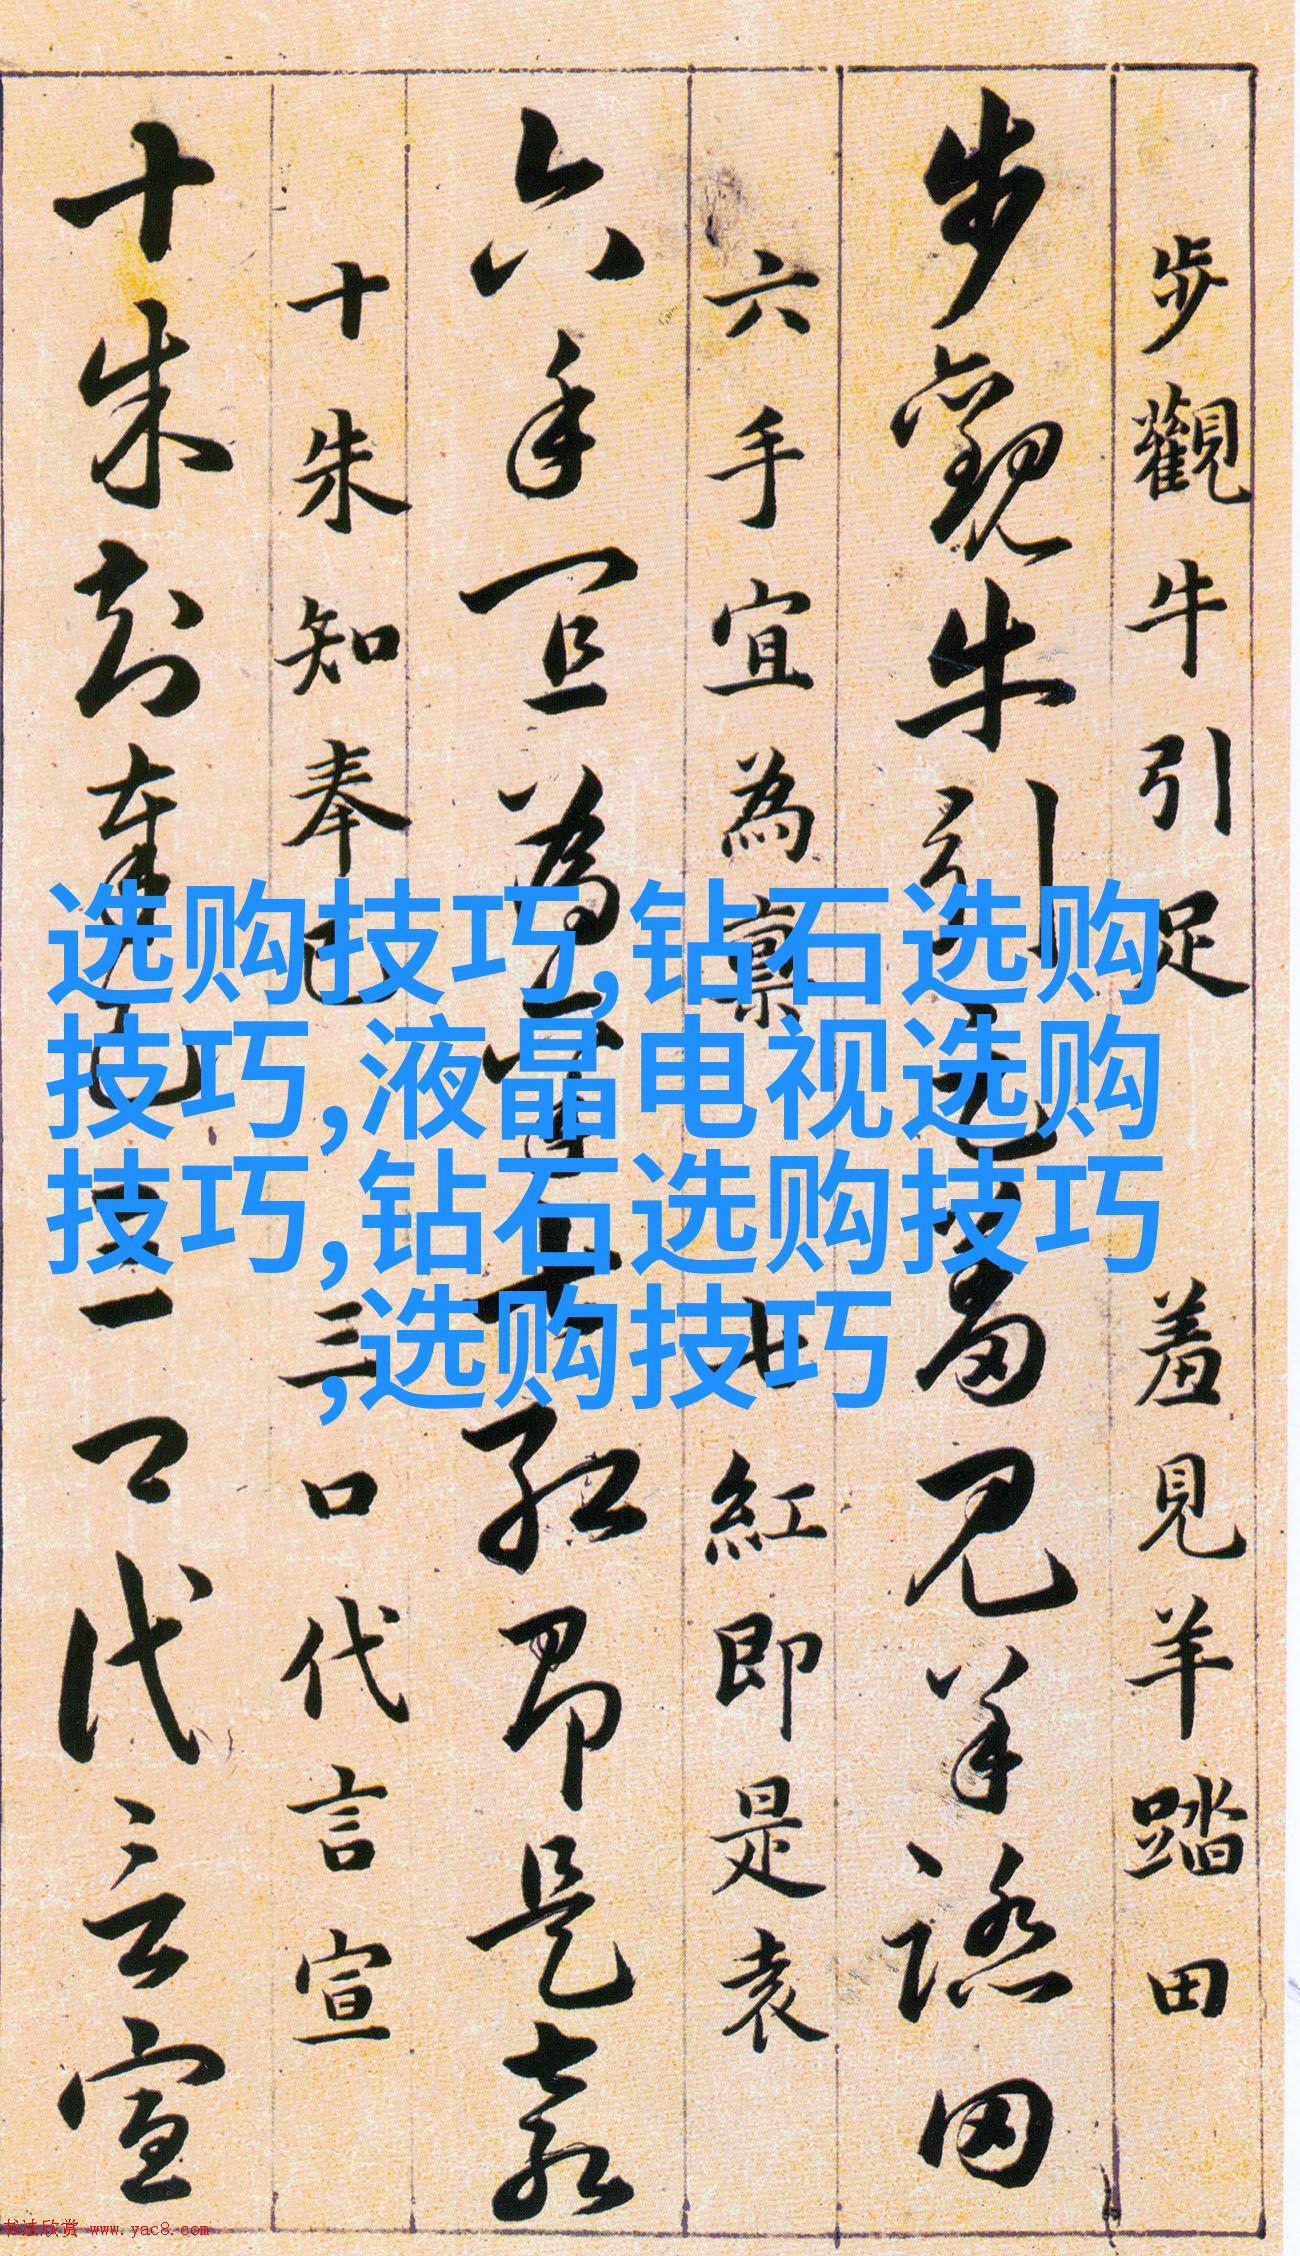 步觀牛引足 羞見羊踏田
步觀牛引足羞見羊踏田
六手宜為稟 七紅即是袁
六手宜為稟七紅即是袁
十朱知奉已 三口代言宣
十朱知奉已三口代言宣
选购技巧,钻石选购
技巧,液晶电视选购
技巧,钻石选购技巧
,选购技巧
书法欣赏 www.yac8.com